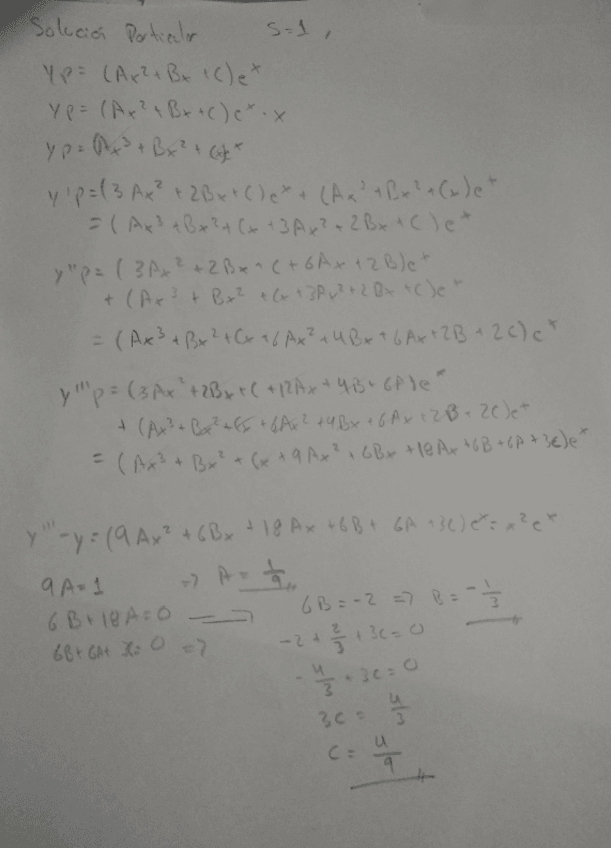 Solución Particular S=1,
yp = (Ax²+Bx+C)eˣ
yp = (Ax²+Bx+C)eˣ·x
yp = (Ax³+Bx²+Cx)eˣ
y'p = (3Ax²+2Bx+C)eˣ + (Ax³+Bx²+Cx)eˣ
= (Ax³+Bx²+Cx+3Ax²+2Bx+C)eˣ
y''p = (3Ax²+2Bx+C+6Ax+2B)eˣ
+ (Ax³+Bx²+Cx+3Ax²+2Bx+C)eˣ
= (Ax³+Bx²+Cx+6Ax²+4Bx+6Ax+2B+2C)eˣ
y'''p = (3Ax²+2Bx+C+12Ax+4B+6A)eˣ
+ (Ax³+Bx²+Cx+6Ax²+4Bx+6Ax+2B+2C)eˣ
= (Ax³+Bx²+Cx+9Ax²+6Bx+18Ax+6B+6A+3C)eˣ
y'''-y = (9Ax²+6Bx+18Ax+6B+6A+3C)eˣ = x²eˣ
9A=1 => A = 1/9
6B+18A=0 => 6B=-2 => B = -1/3
6B+6A+3C=0 => -2+2/3+3C=0
-4/3+3C=0
3C = 4/3
C = 4/9